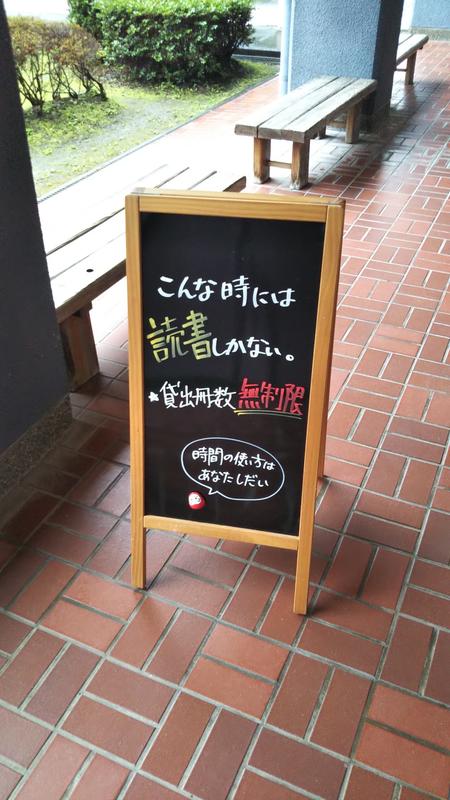 こんな時には
読書しかない。
★貸出冊数無制限
時間の使い方は
あなたしだい